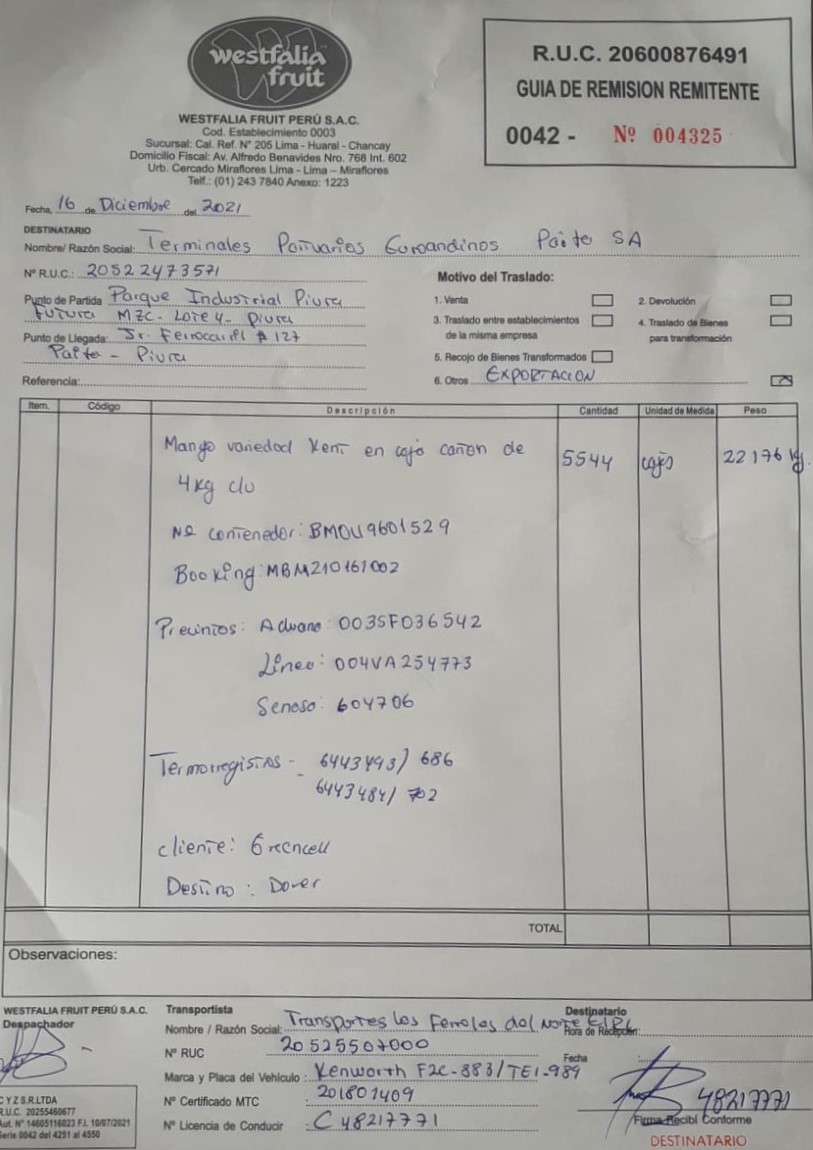 westfalia
fruit
WESTFALIA FRUIT PERÚ S.A.C.
Cod. Establecimiento 0003
Sucursal: Cal. Ref. N° 205 Lima - Huaral - Chancay
Domicilio Fiscal: Av. Alfredo Benavides Nro. 768 Int. 602
Urb. Cercado Miraflores Lima - Lima – Miraflores
Telf.: (01) 243 7840 Anexo: 1223
R.U.C. 20600876491
GUIA DE REMISION REMITENTE
0042 - Nº 004325
Fecha, 16 de Diciembre del 2021
DESTINATARIO
Nombre/ Razón Social: Terminales Portuarios Euroandinos Paita SA
Nº R.U.C.: 20522473571
Punto de Partida Parque Industrial Piura
FUTURA MZC - Lote 4 - Piura
Punto de Llegada: Jr. Ferrocarril # 127
Paita - Piura
Referencia:
Motivo del Traslado:
1. Venta
2. Devolución
3. Traslado entre establecimientos
de la misma empresa
4. Traslado de Bienes
para transformación
5. Recojo de Bienes Transformados
6. Otros EXPORTACION
Item. Código Descripción Cantidad Unidad de Medida Peso
Mango variedad Kent en caja carton de 5544 cajas 22176 kg.
4kg c/u
Nº contenedor: BMOU9601529
Booking: MBM210161002
Precintos: Aduana: 0035F036542
Linea: 004VA254773
Senasa: 604706
Termorregistros - 6443493/ 686
6443484/ 702
cliente: Greencell
Destino: Dover
TOTAL
Observaciones:
WESTFALIA FRUIT PERÚ S.A.C.
Despachador
Transportista
Nombre / Razón Social: Transportes los Ferroles del Norte EIRL
Nº RUC 20525507000
Marca y Placa del Vehículo: Kenworth F2C-883/TE1-989
Nº Certificado MTC: 201801409
Nº Licencia de Conducir: C48217771
Destinatario
Hora de Recepción:
Fecha
48217771
Firma Recibí Conforme
DESTINATARIO
C Y Z S.R.LTDA
R.U.C. 20255460677
Aut. Nº 14605116023 F.I. 10/07/2021
Serie 0042 del 4251 al 4550